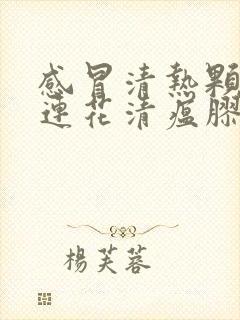 感冒清熱顆
連花清瘟膠
楊芙蓉